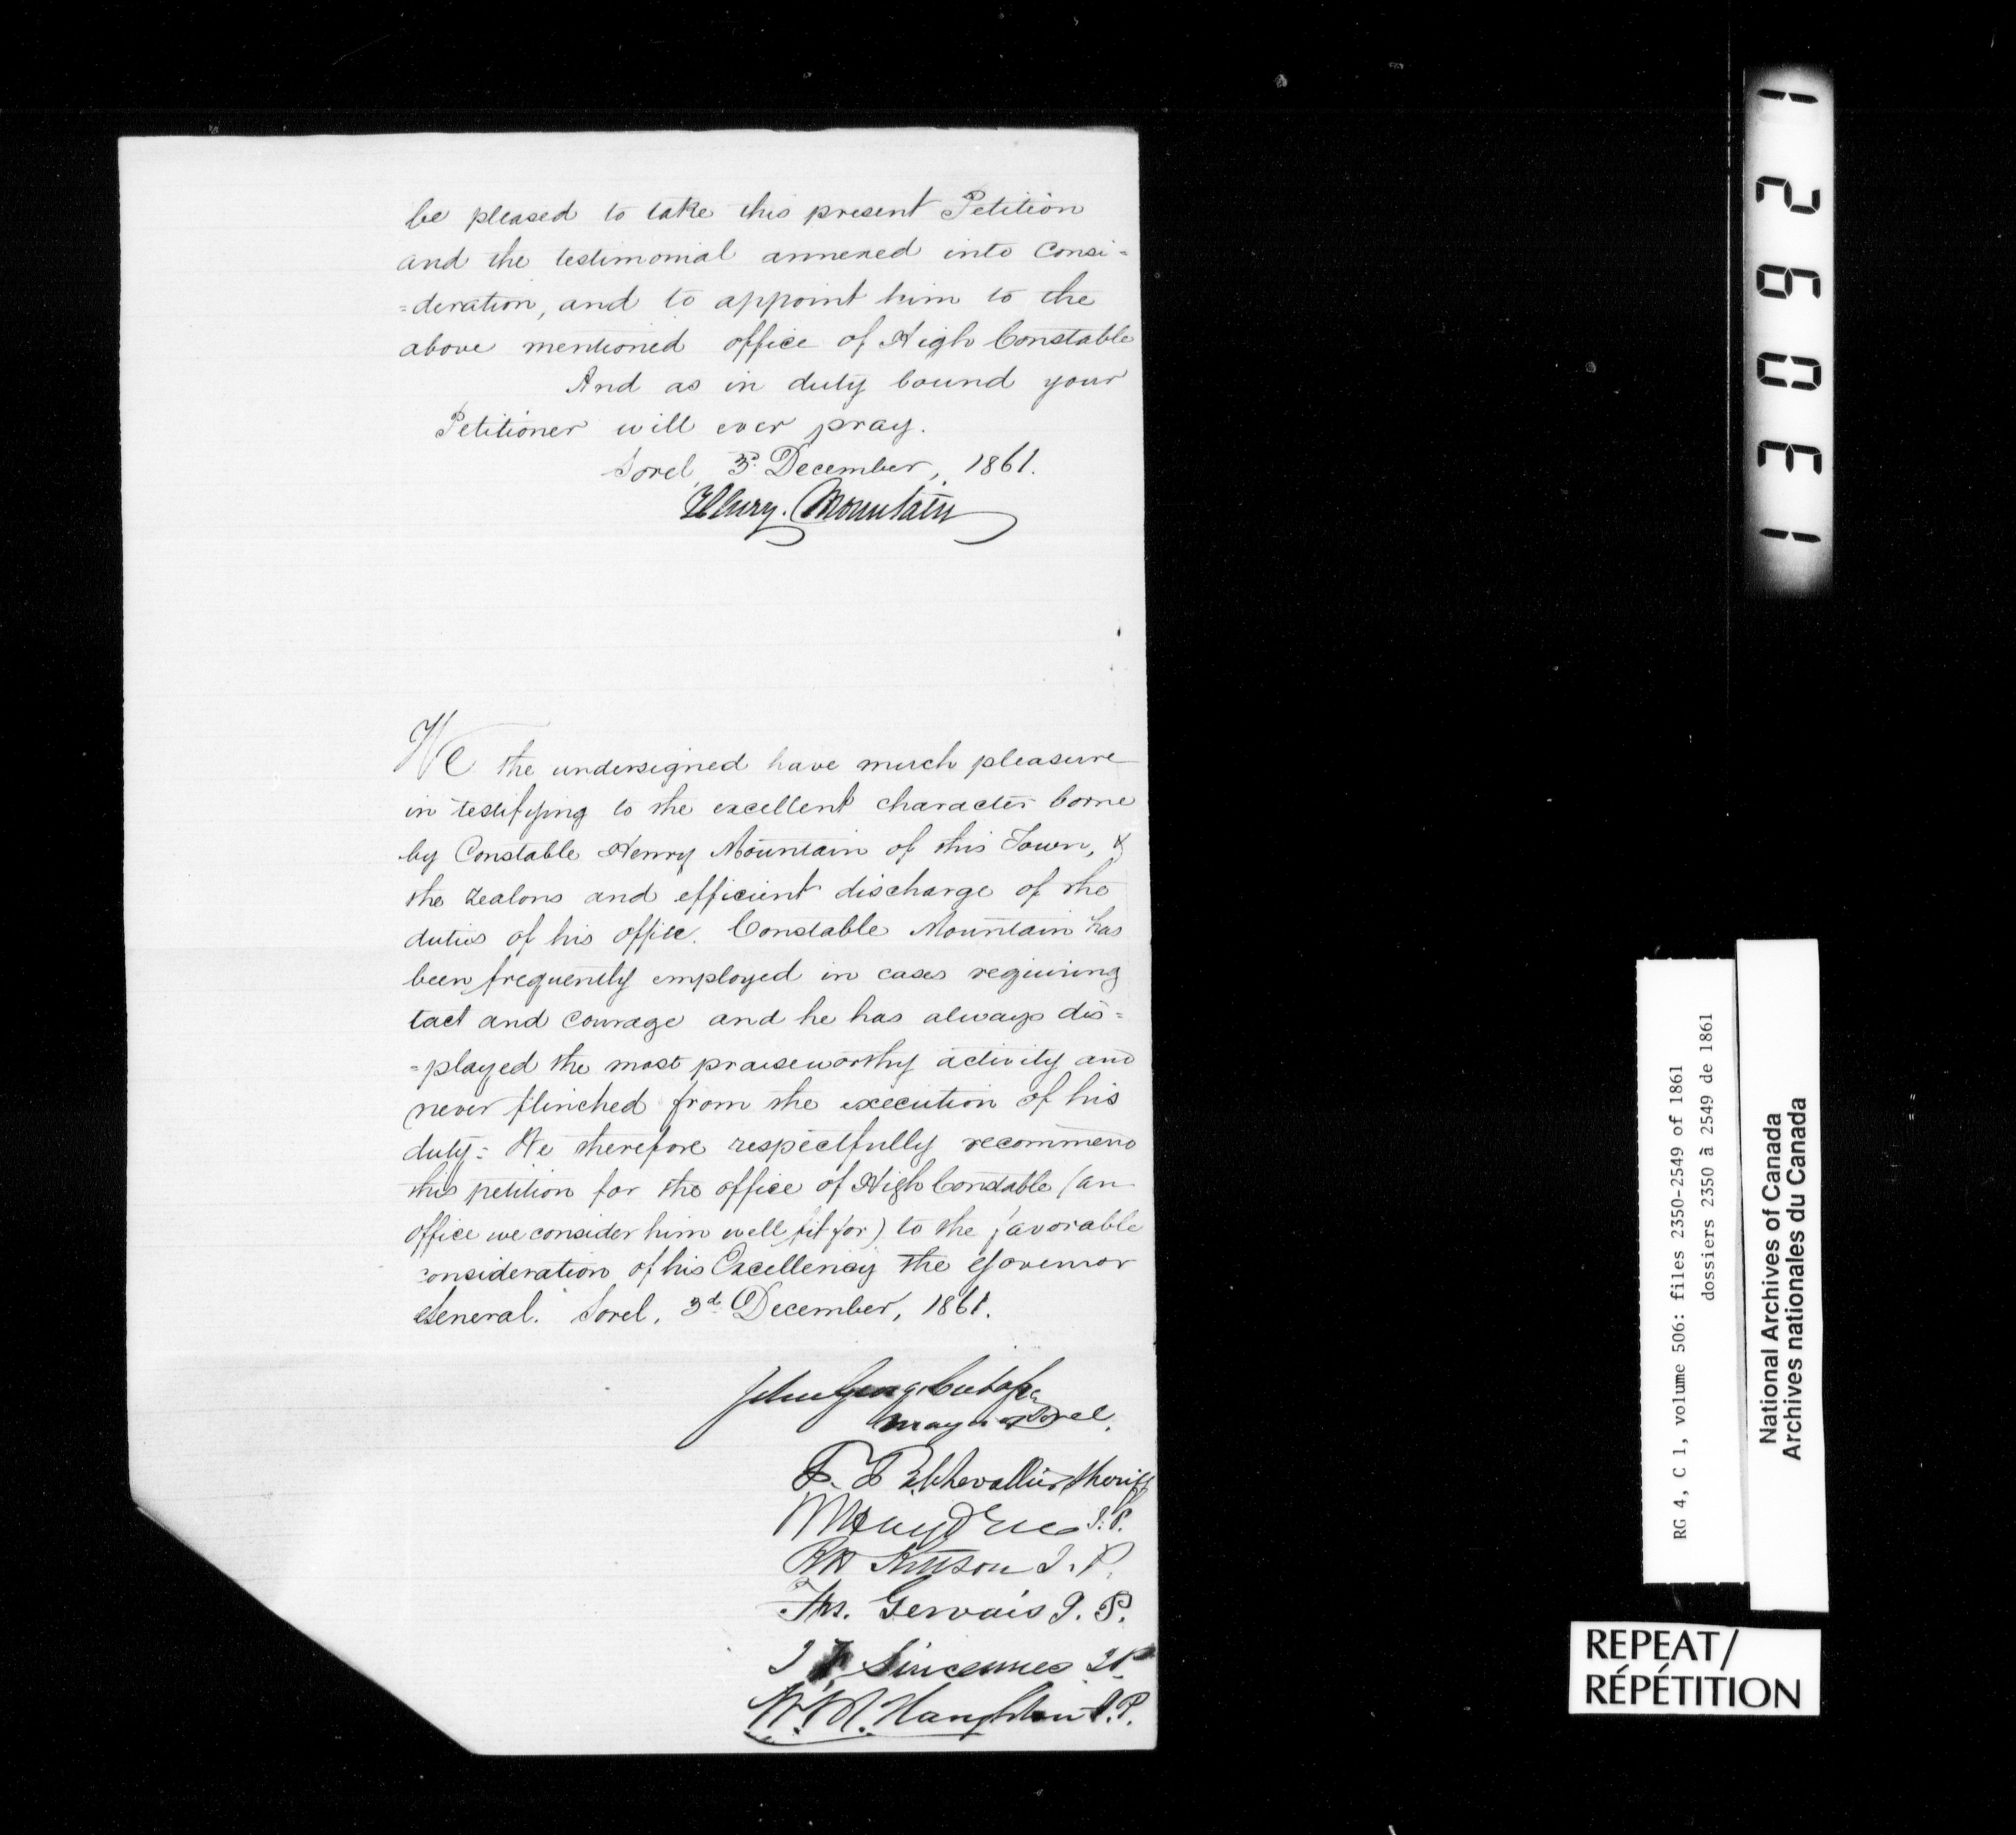 be pleased to take this present Petition
and the testimonial annexed into consi=
=deration, and to appoint him to the
above mentioned office of High Constable
And as in duty bound your
Petitioner will ever pray.
Sorel, 3d December, 1861.
Henry. Mountain
We the undersigned have much pleasure
in testifying to the excellent character borne
by Constable Henry Mountain of this Town, &
the zealous and efficient discharge of the
duties of his office. Constable Mountain has
been frequently employed in cases requiring
tact and courage and he has always dis=
=played the most praiseworthy activity and
never flinched from the execution of his
duty= We therefore respectfully recommend
this petition for the office of High Constable (an
office we consider him well fit for) to the favorable
consideration of his Excellency the Governor
General. Sorel, 3d December, 1861.
John George
Mayor of Sorel.
Sheriff
J.P.
J.P.
Ths. Gervais J.P.
Sincennes JP
J.P.
126031
RG 4, C 1, volume 506: files 2350-2549 of 1861
dossiers 2350 à 2549 de 1861
National Archives of Canada
Archives nationales du Canada
REPEAT/
RÉPÉTITION